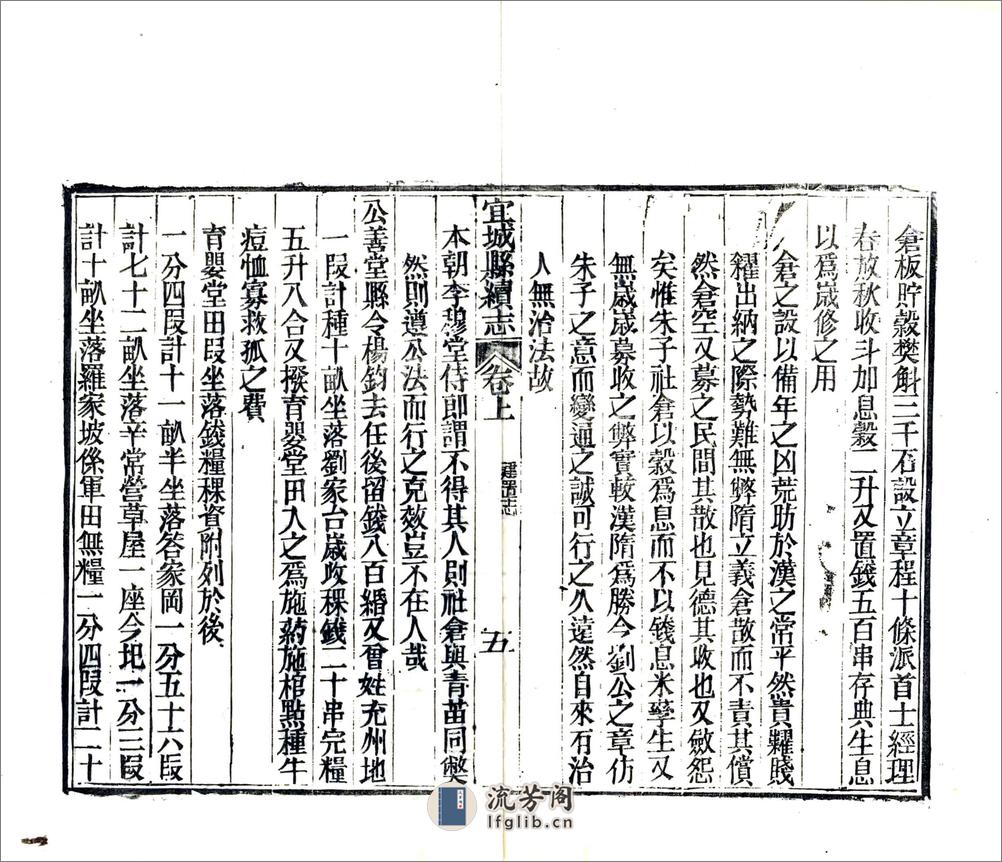 倉板貯穀樊斛三千石設立章程十條派首士經理
春放秋收斗加息穀二升又置錢五百串存典生息
以爲歲修之用
倉之設以備年之凶荒昉於漢之常平然貴糶賤
糴出納之際勢難無弊隋立義倉散而不責其償
然倉空又募之民間其散也見德其收也又斂怨
矣惟朱子社倉以穀爲息而不以錢息米孳生又
無歲歲募收之弊實較漢隋爲勝今劉公之章仿
朱子之意而變通之誠可行之久遠然自來有治
人無治法故
宜城縣續志 卷上 建置志 五
本朝李穆堂侍郎謂不得其人則社倉與青苗同獘
然則遵公法而行之克效豈不在人哉
公善堂縣令楊鈞去任後留錢八百緡又曾姓充州地
一叚計種十畝坐落劉家台歲收稞錢二十串完糧
五升八合又撥育嬰堂田入之爲施葯施棺點種牛
痘恤寡救孤之費
育嬰堂田叚坐落錢糧稞資附列於後
一分四叚計十一畝半坐落答家岡一分五十六叚
計七十二畝坐落辛常營草屋一座今圯一分三叚
計十畝坐落羅家坡係軍田無糧一分四叚計二十
流芳阁
lfglib.cn